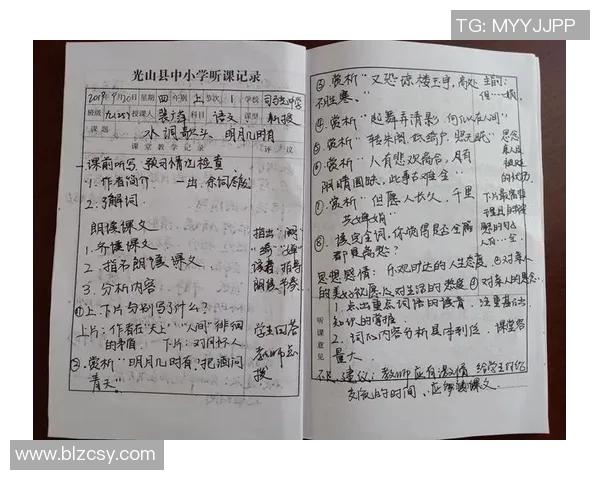 TG: MYYJJPP
光山县中小学听课记录
2019年9月20日 星期 四 年级 上 节次 1 学校 司马光中学
班级 九(25) 授课人 科目 语文 课型 新授
课题 水调歌头·明月几时有
课堂教学记录 评议
一课前听写、预习情况检查
1.作者简介 一出·余词尽废
2.了解词
朗读课文
1.齐读课文
2.指名朗读课文
3.分析内容
①上、下片分别写了什么？
上片：作者在"天上""人间"徘徊
的矛盾 下片：对月怀人
②.赏析"明月几时有，把酒问
青天"
指出"阙"
"绮""婵"
读音，指导
朗读节奏
学生回答
教师点
拨
③.赏析"又恐琼楼玉宇，高处
不胜寒。"
④.赏析"起舞弄清影，何似在人间"
⑤.赏析"转朱阁，低绮户，照无眠"
⑥.赏析"人有悲欢离合，月有
阴晴圆缺，此事古难全"
⑦.赏析"但愿人长久，千里
共婵娟"
⑧.读完全词，你觉得是否全篇
都是离愁？
思想感情：乐观旷达的人生态度 ②对亲人
的美好祝愿 ③对生活的热爱 ④对亲人的思念
听课意见
1.点出重点词语的读音，注重基础
知识的掌握
2.词的内容分析具体到位，课堂容
量大。
建议：教师应有激情 给学生
交流的时间、应 读课文
www.blzcsy.com